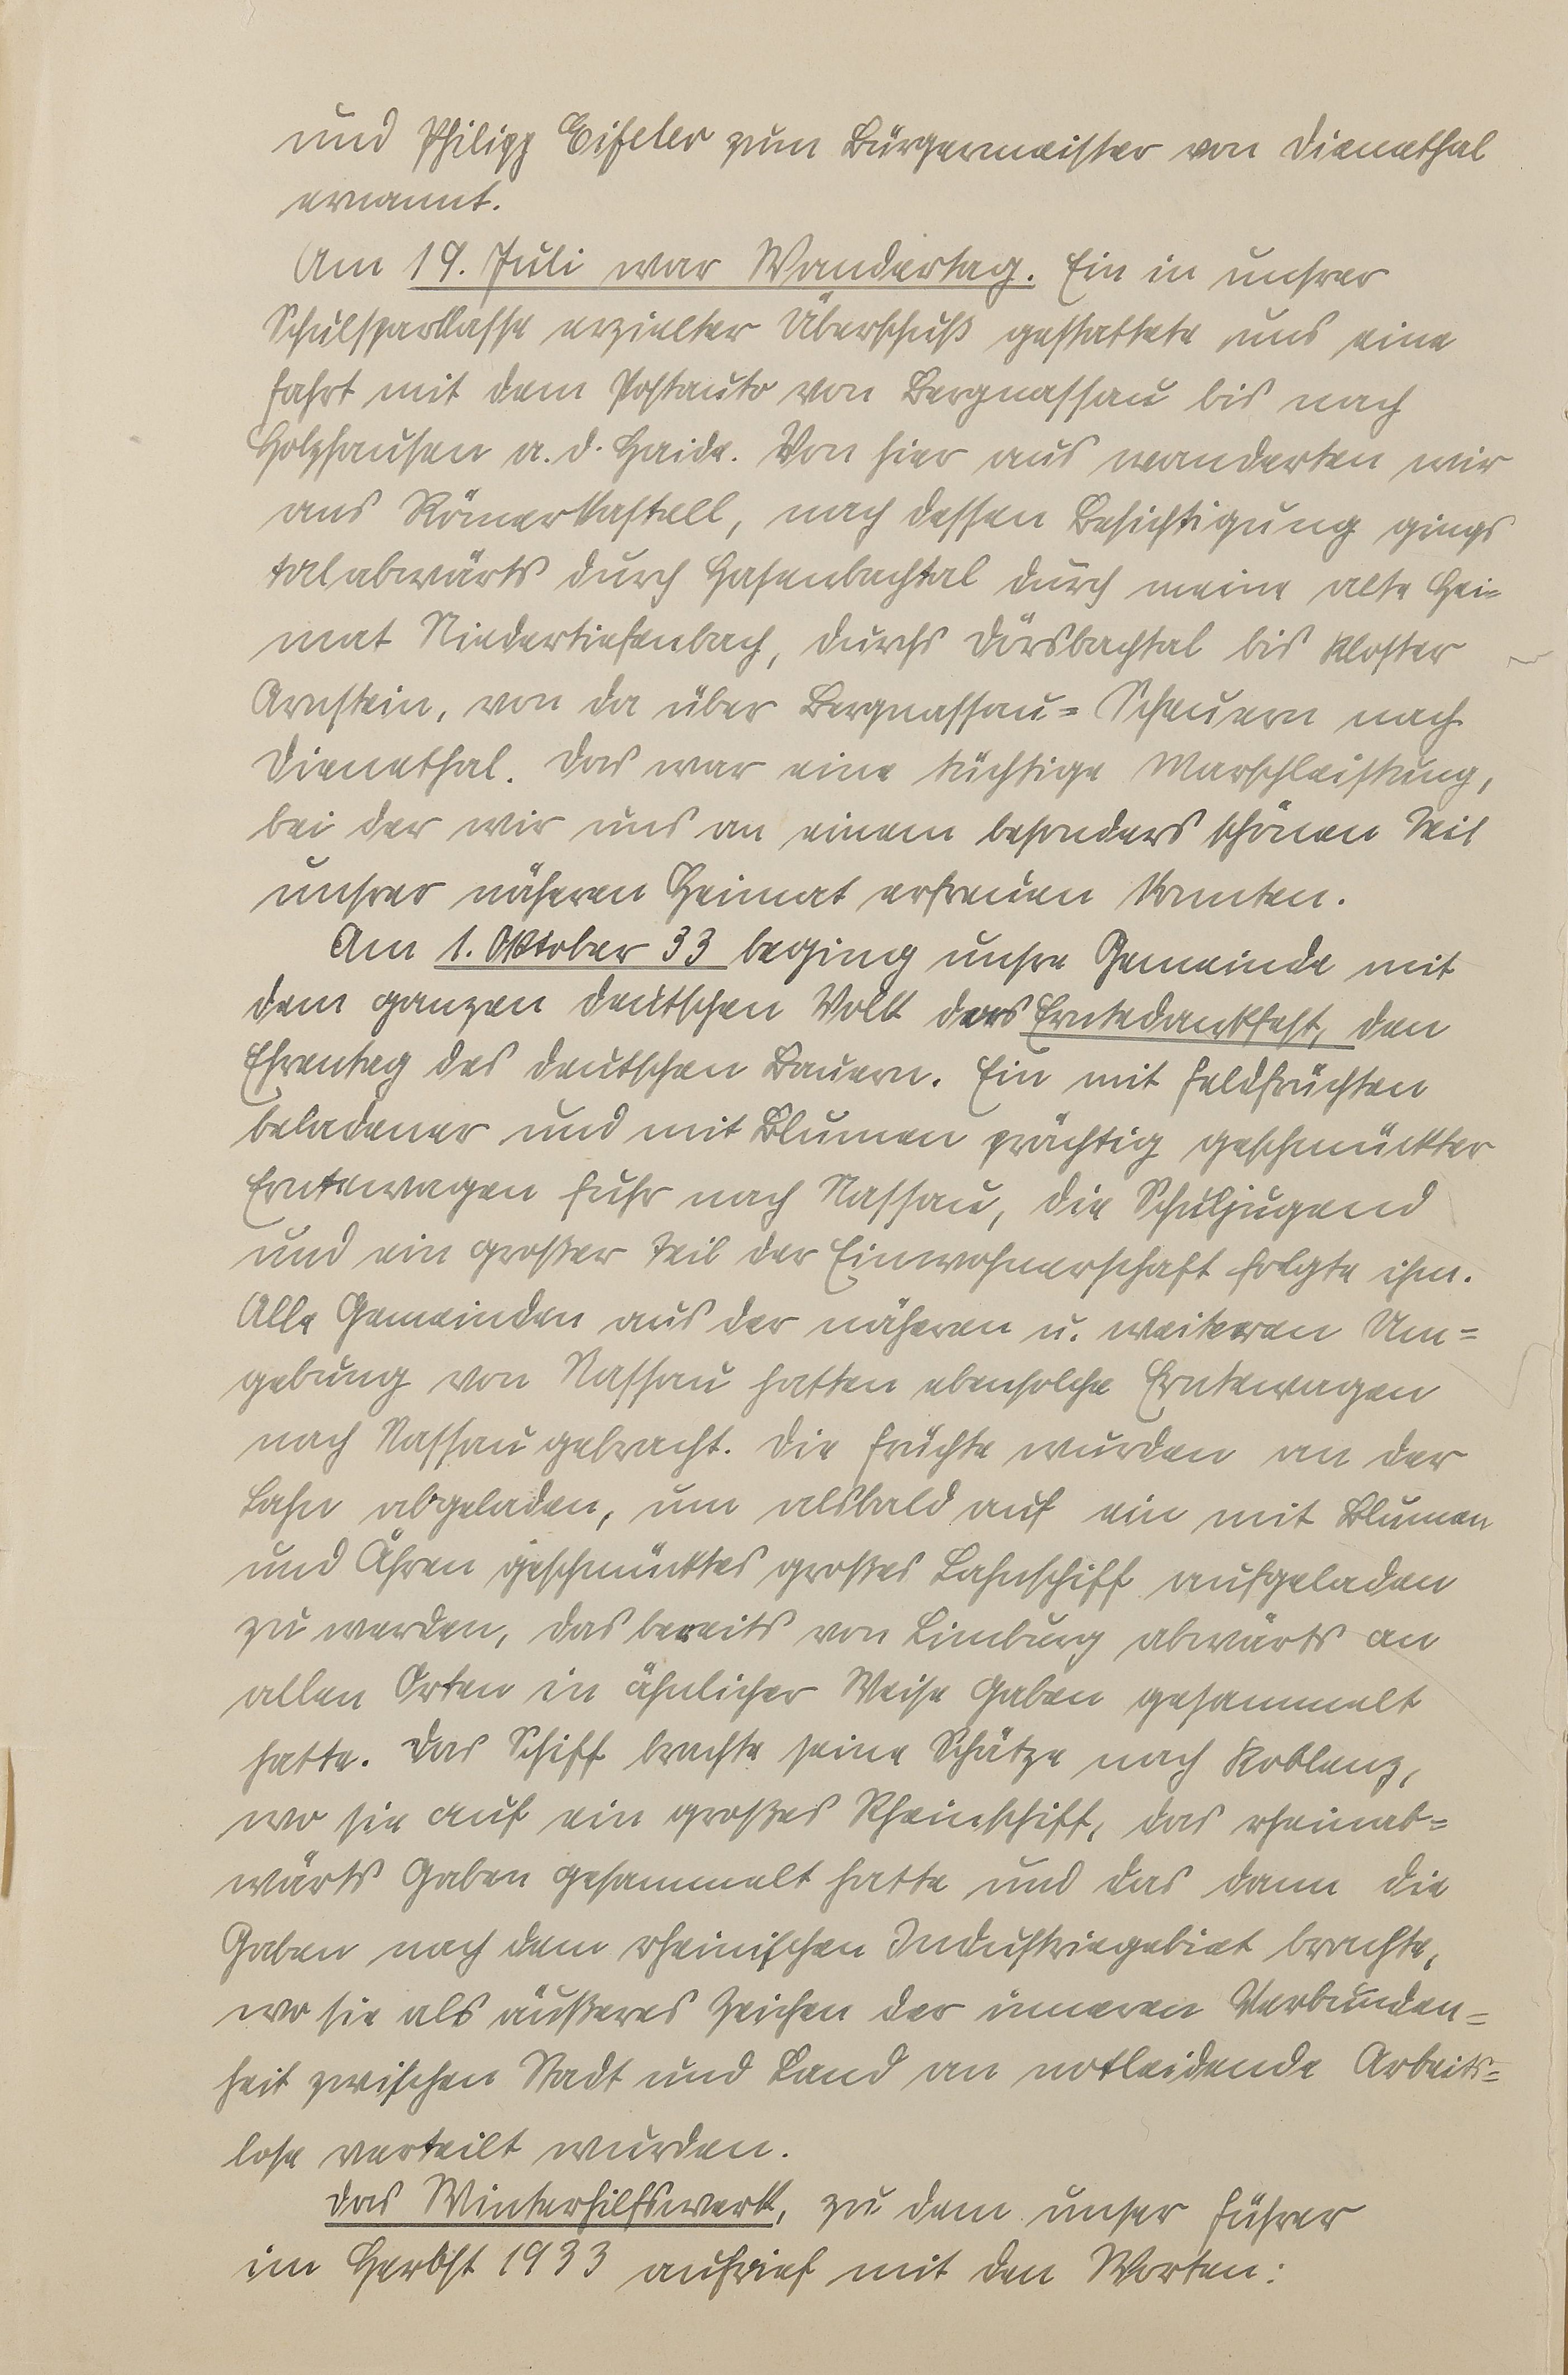 und Philipp Eifeler zum Bürgermeister von Dienethal
ernannt.
Am 19. Juli war Wandertag. Ein in unsrer
Schulsparkasse erzielter Überschuß gestattete uns eine
Fahrt mit dem Postauto von Bergnassau bis nach
Holzhausen a. d. Haide. Von hier aus wanderten wir
ans Römerkastell, nach dessen Besichtigung gings
talabwärts durch Hasenbachtal durch meine alte Hei-
mat Niedertiefenbach, durchs Dörsbachtal bis Kloster
Arnstein, von da über Bergnassau=Scheuern nach
Dienethal. Das war eine tüchtige Marschleistung,
bei der wir uns an einem besonders schönen Teil
unsrer näheren Heimat erfreuen konnten.
Am 1. Oktober 33 beging unsre Gemeinde mit
dem ganzen deutschen Volk das Erntedankfest, den
Ehrentag des deutschen Bauern. Ein mit Feldfrüchten
beladener und mit Blumen prächtig geschmückter
Erntewagen fuhr nach Nassau, die Schuljugend
und ein großer Teil der Einwohnerschaft folgte ihm.
Alle Gemeinden aus der näheren u. weiteren Um=
gebung von Nassau hatten ebensolche Erntewagen
nach Nassau gebracht. Die Früchte wurden an der
Lahn abgeladen, um alsbald auf ein mit Blumen
und Ähren geschmücktes großes Lahnschiff aufgeladen
zu werden, das bereits von Limburg abwärts an
allen Orten in ähnlicher Weise Gaben gesammelt
hatte. Das Schiff brachte seine Schätze nach Koblenz,
wo sie auf ein großes Rheinschiff, das rheinab=
wärts Gaben gesammelt hatte und das dann die
Gaben nach dem rheinischen Industriegebiet brachte,
wo sie als äußeres Zeichen der inneren Verbunden=
heit zwischen Stadt und Land an notleidende Arbeits=
lose verteilt wurden.
Das Winterhilfswerk, zu dem unser Führer
im Herbst 1933 aufrief mit den Worten: